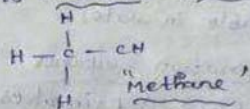 H
H - C - CH
H
"Methane"